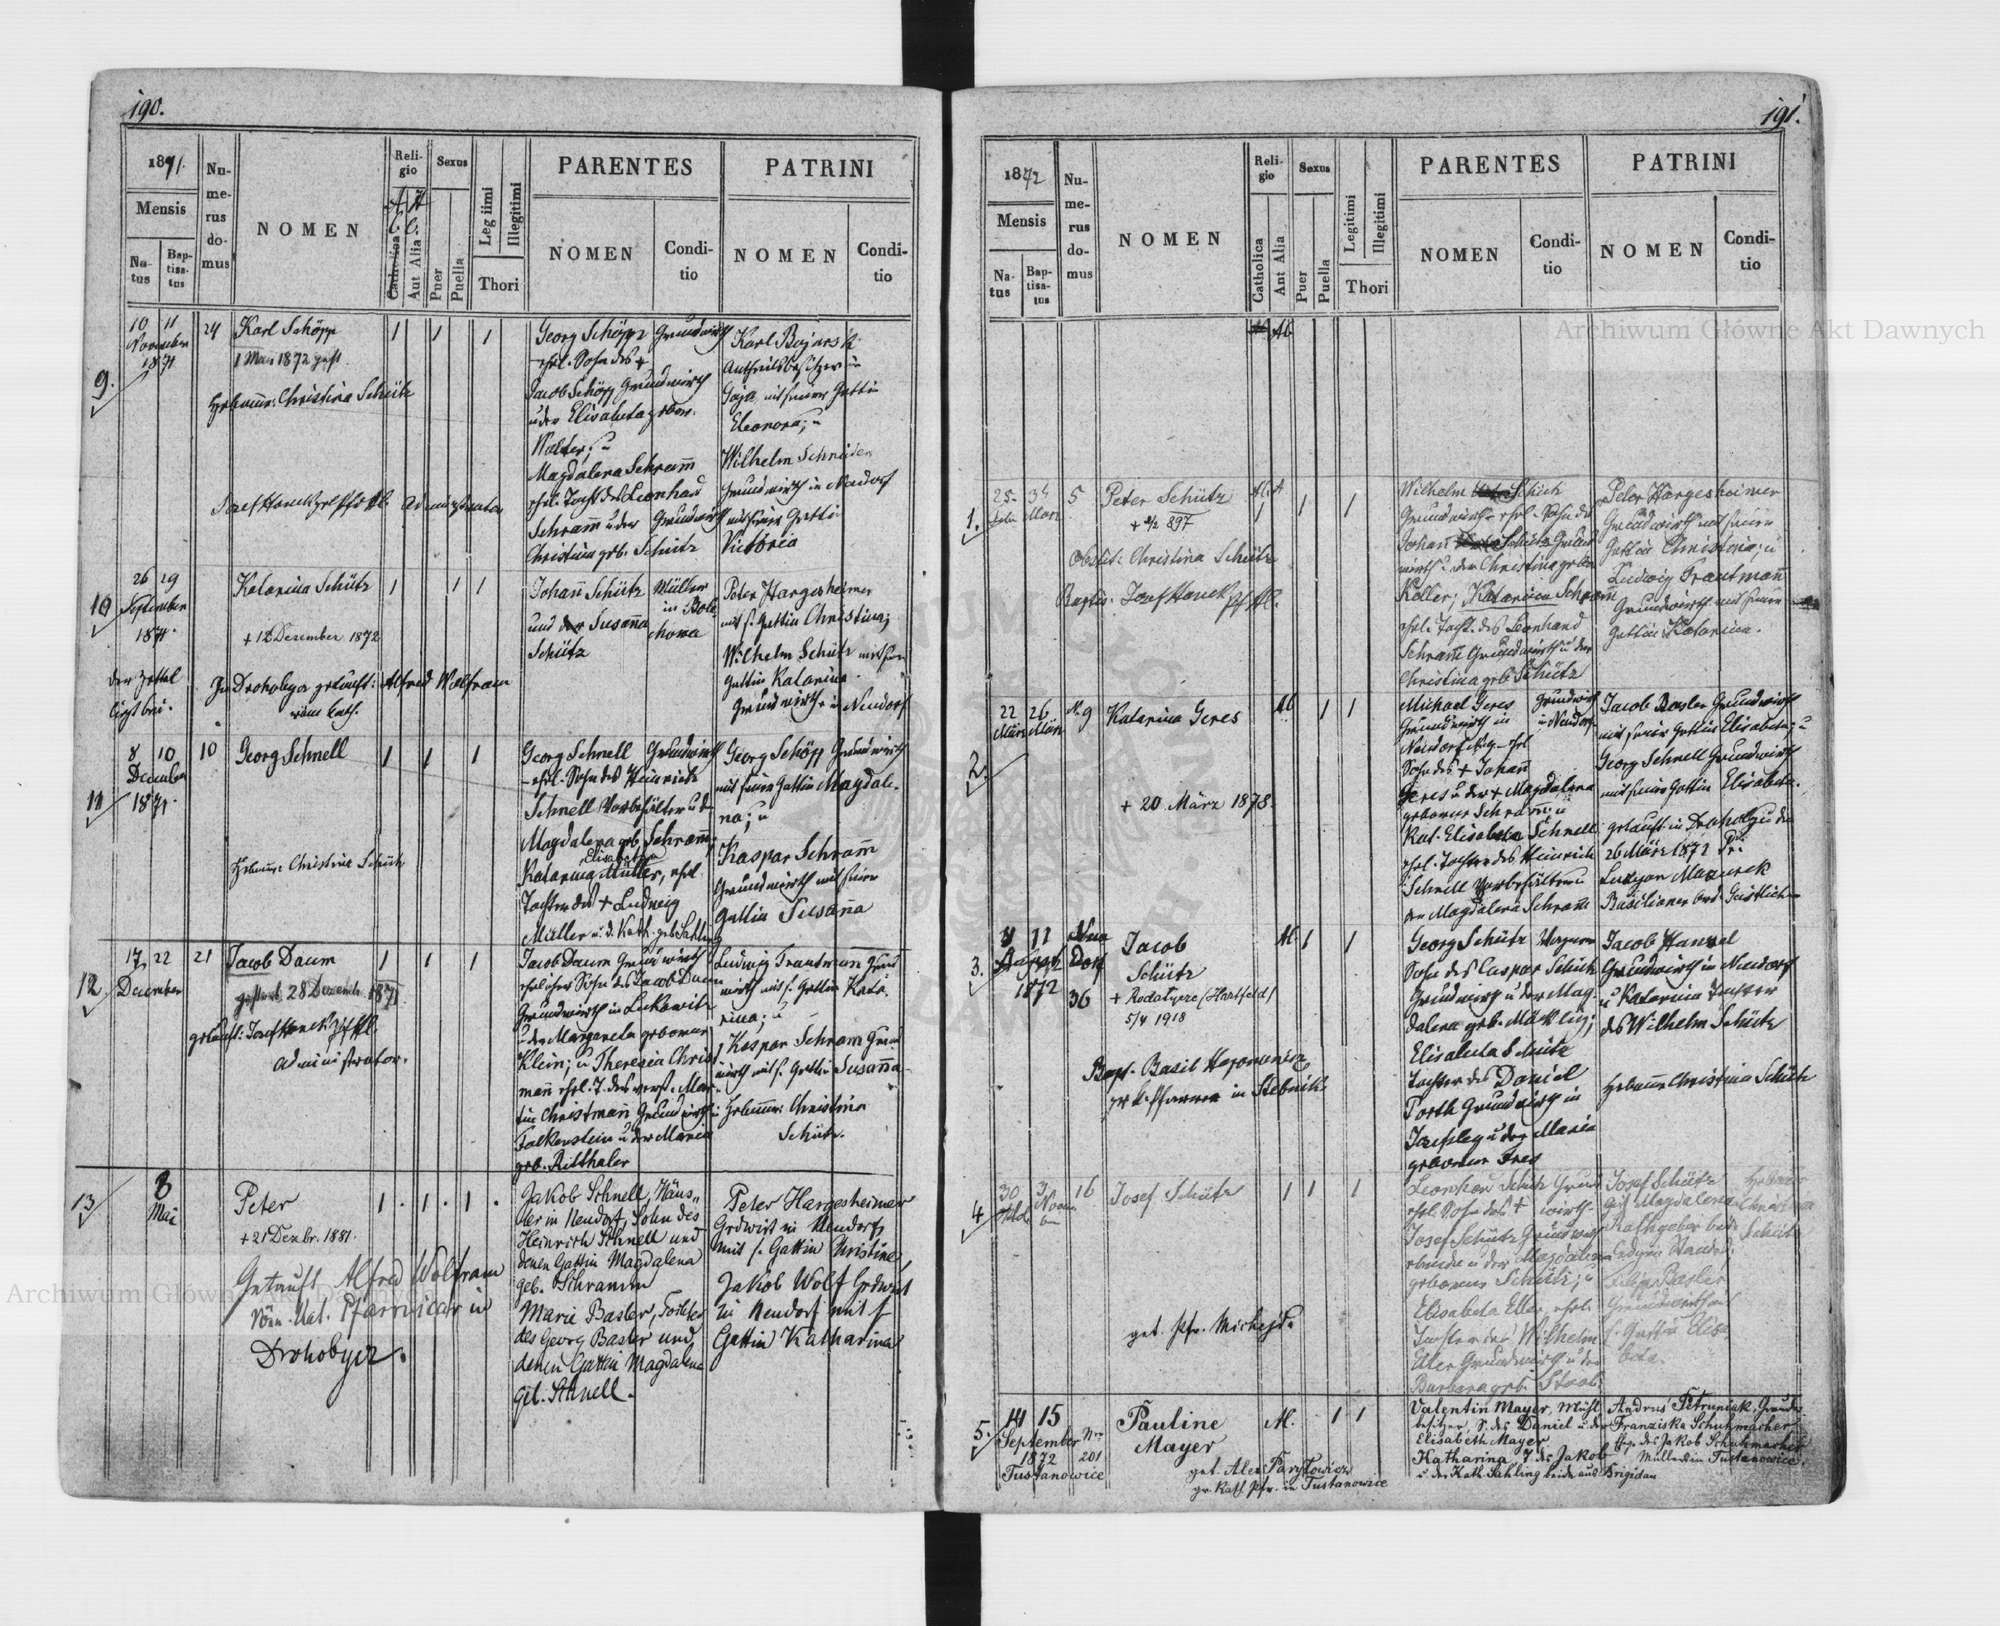 190.
1871.
Mensis
Na-
tus
Bap-
tisa-
tus
Nu-
me-
rus
do-
mus
NOMEN
Reli-
gio
A. A.
C. C.
Catholica
Aut Alia
Sexus
Puer
Puella
Legitimi
Illegitimi
Thori
PARENTES
NOMEN
Condi-
tio
PATRINI
NOMEN
Condi-
tio
9.
10 11
November
1871
24
Karl Schöpp
1 Mai 1872 gest.
Hebamme: Christina Schütz
1 1 1
Georg Schöpp Grundwirth
ehel. Sohn des +
Jacob Schöpp Grundwirth
u der Elisabeta gebor.
Walter; u
Magdalena Schramm
ehel. Tocht. des Leonhard
Schramm u der Grundwirth
Christina geb. Schütz
Karl Bojarski
Antheilsbesitzer in
Gaja mit seiner Gattin
Eleonora; u
Wilhelm Schneider
Grundwirth in Neudorf
mit seiner Gattin
Victoria
Josef Hanek
Administrator
10
26 29
September
1871.
Katarina Schütz
+ 12 Dezember 1872
1 1 1
Johann Schütz Müller
in Bole
chowa
und der Susanna
Schütz
Peter Hargesheimer
mit s. Gattin Christina;
Wilhelm Schütz mit seiner
Gattin Katarina
Grundwirthe in Neudorf
der Zettel
liegt bei.
In Drohobycz getauft: Alfred Wolfram
röm. kath.
11
8 10
December
1871.
10
Georg Schnell
1 1 1
Hebamme: Christine Schütz
Georg Schnell Grundwirth
ehel. Sohn des Heinrich
Schnell Vorbehälter u d
Magdalena geb. Schramm;
Elisabetha
Katarina Müller, ehel.
Tochter des + Ludwig
Müller u. d. Kath. geb. Sahling
Georg Schöpp Grundwirth
mit seiner Gattin Magdale-
na; u
Kaspar Schramm
Grundwirth mit seiner
Gattin Susanna
12
17 22
December
21
Jacob Daum
gestorb. 28 Dezemb. 1871
getauft: Josef Hanek
Administrator.
1 1 1
Jacob Daum Grundwirth
ehelicher Sohn des Jacob Daum
Grundwirth in
u der Margareta geborne
Klein; u Theresia Christ
mann ehel. T. des verst. Mar
tin Christmann Grundwirth in
Falkenstein u der Maria
geb. Ritthaler
Ludwig Trautmann Grund
wirth mit s. Gattin Kata-
rina; u
Kaspar Schram Grund
wirth mit s. Gattin Susanna
Hebamme: Christina
Schütz.
13
8
Mai
Peter
+ 21 Dezbr. 1881.
Getauft Alfred Wolfram
Röm. kat. Pfarrvicar in
Drohobycz.
1 1 1
Jakob Schnell, Häus-
ler in Neudorf, Sohn des
Heinrich Schnell und
denen Gattin Magdalena
geb. Schramm
Marie Basler, Tochter
des Georg Basler und
denen Gattin Magdalena
geb. Schnell.
Peter Hargesheimer
Grdwirt in Neudorf,
mit s. Gattin Christine,
Jakob Wolf Grdwirt
in Neudorf mit s.
Gattin Katharina
191.
1872
Mensis
Na-
tus
Bap-
tisa-
tus
Nu-
me-
rus
do-
mus
NOMEN
Reli-
gio
Catholica
Aut Alia
Sexus
Puer
Puella
Legitimi
Illegitimi
Thori
PARENTES
NOMEN
Condi-
tio
PATRINI
NOMEN
Condi-
tio
1.
25
März
5
Peter Schütz
Obstet: Christina Schütz
Baptis. Josef Hanek
Wilhelm Schütz
Grundwirth ehel. Sohn des
Johann Schütz Grund
wirth u. der Christina geborne
Koller; Katarina Schramm
ehel. Tocht. des Leonhard
Schramm Grundwirth u der
Christina geb. Schütz
Peter Hargesheimer
Grundwirth mit seiner
Gattin Christina; u
Ludwig Trautmann
Grundwirth mit seiner
Gattin Katarina.
2.
22 26
März März
No 9
Katarina Geres
+ 20 März 1878.
Michael Geres Grundwirth
Grundwirth in Neudorf
Neudorf ehel
Sohn des + Johann
Geres u der + Magdalena
geborner Schramm; u
Kat. Elisabeta Schnell
ehel. Tochter des Heinrich
Schnell Vorbehälter u
der Magdalena Schramm
Jacob Basler Grundwirth
mit seiner Gattin Elisabeta; u
Georg Schnell Grundwirth
mit seiner Gattin Elisabeta.
getauft in Drohobycz den
26 März 1872 Pr.
Lucyan Mazurek
Basilianer Ord. Geistlicher
3.
8 11
August
1872
Neu
Dorf
36
Jacob
Schütz
+ Rodatycze (Hartfeld)
5/4 1918
Bapt. Basil
gr. k. Pfarrer in Stebnik
Georg Schütz Wagner
Sohn des Caspar Schütz
Grundwirth u der Mag-
dalena geb. Mäcklig;
Elisabeta Schütz
Tochter des Daniel
Porth Grundwirth in
Josefsberg u der Maria
geborner Fres
Jacob Hanzel
Grundwirth in Neudorf
u Katarina Tochter
des Wilhelm Schütz
Hebamme Christina Schütz
4.
30 3
Novem
ber
16
Josef Schütz
1 1 1
get. Pfr. Michejda
Leonhard Schütz Grund
ehel. Sohn des + wirth
Josef Schütz Grundwirth
u der Magdalena
geborner Schütz; u
Elisabeta Eller, ehel.
Tochter des Wilhelm
Eller Grundwirth u der
Barbara geb. Staab.
Josef Schütz
mit Magdalena
Rathgeber
Filipp Basler
Grundwirth mit
s. Gattin Elisa
beta.
Hebamme
Christina
Schütz
5.
14 15
September
1872
Tustanowice
Nro
201
Pauline
Mayer
get. Alex Paryłowicz
gr. kath. Pfr. in Tustanowice
Valentin Mayer, Mühl
besitzer, S. des Daniel u. der
Elisabeth Mayer
Katharina T. des Jakob
u. der Kath. Sahling beide aus Brigidau
Andrus Petruniak, Grund
Franziska Schuhmacher
des Jakob Schuhmacher
Müller in Tustanowice.
Archiwum Główne Akt Dawnych
Archiwum Główne Akt Dawnych